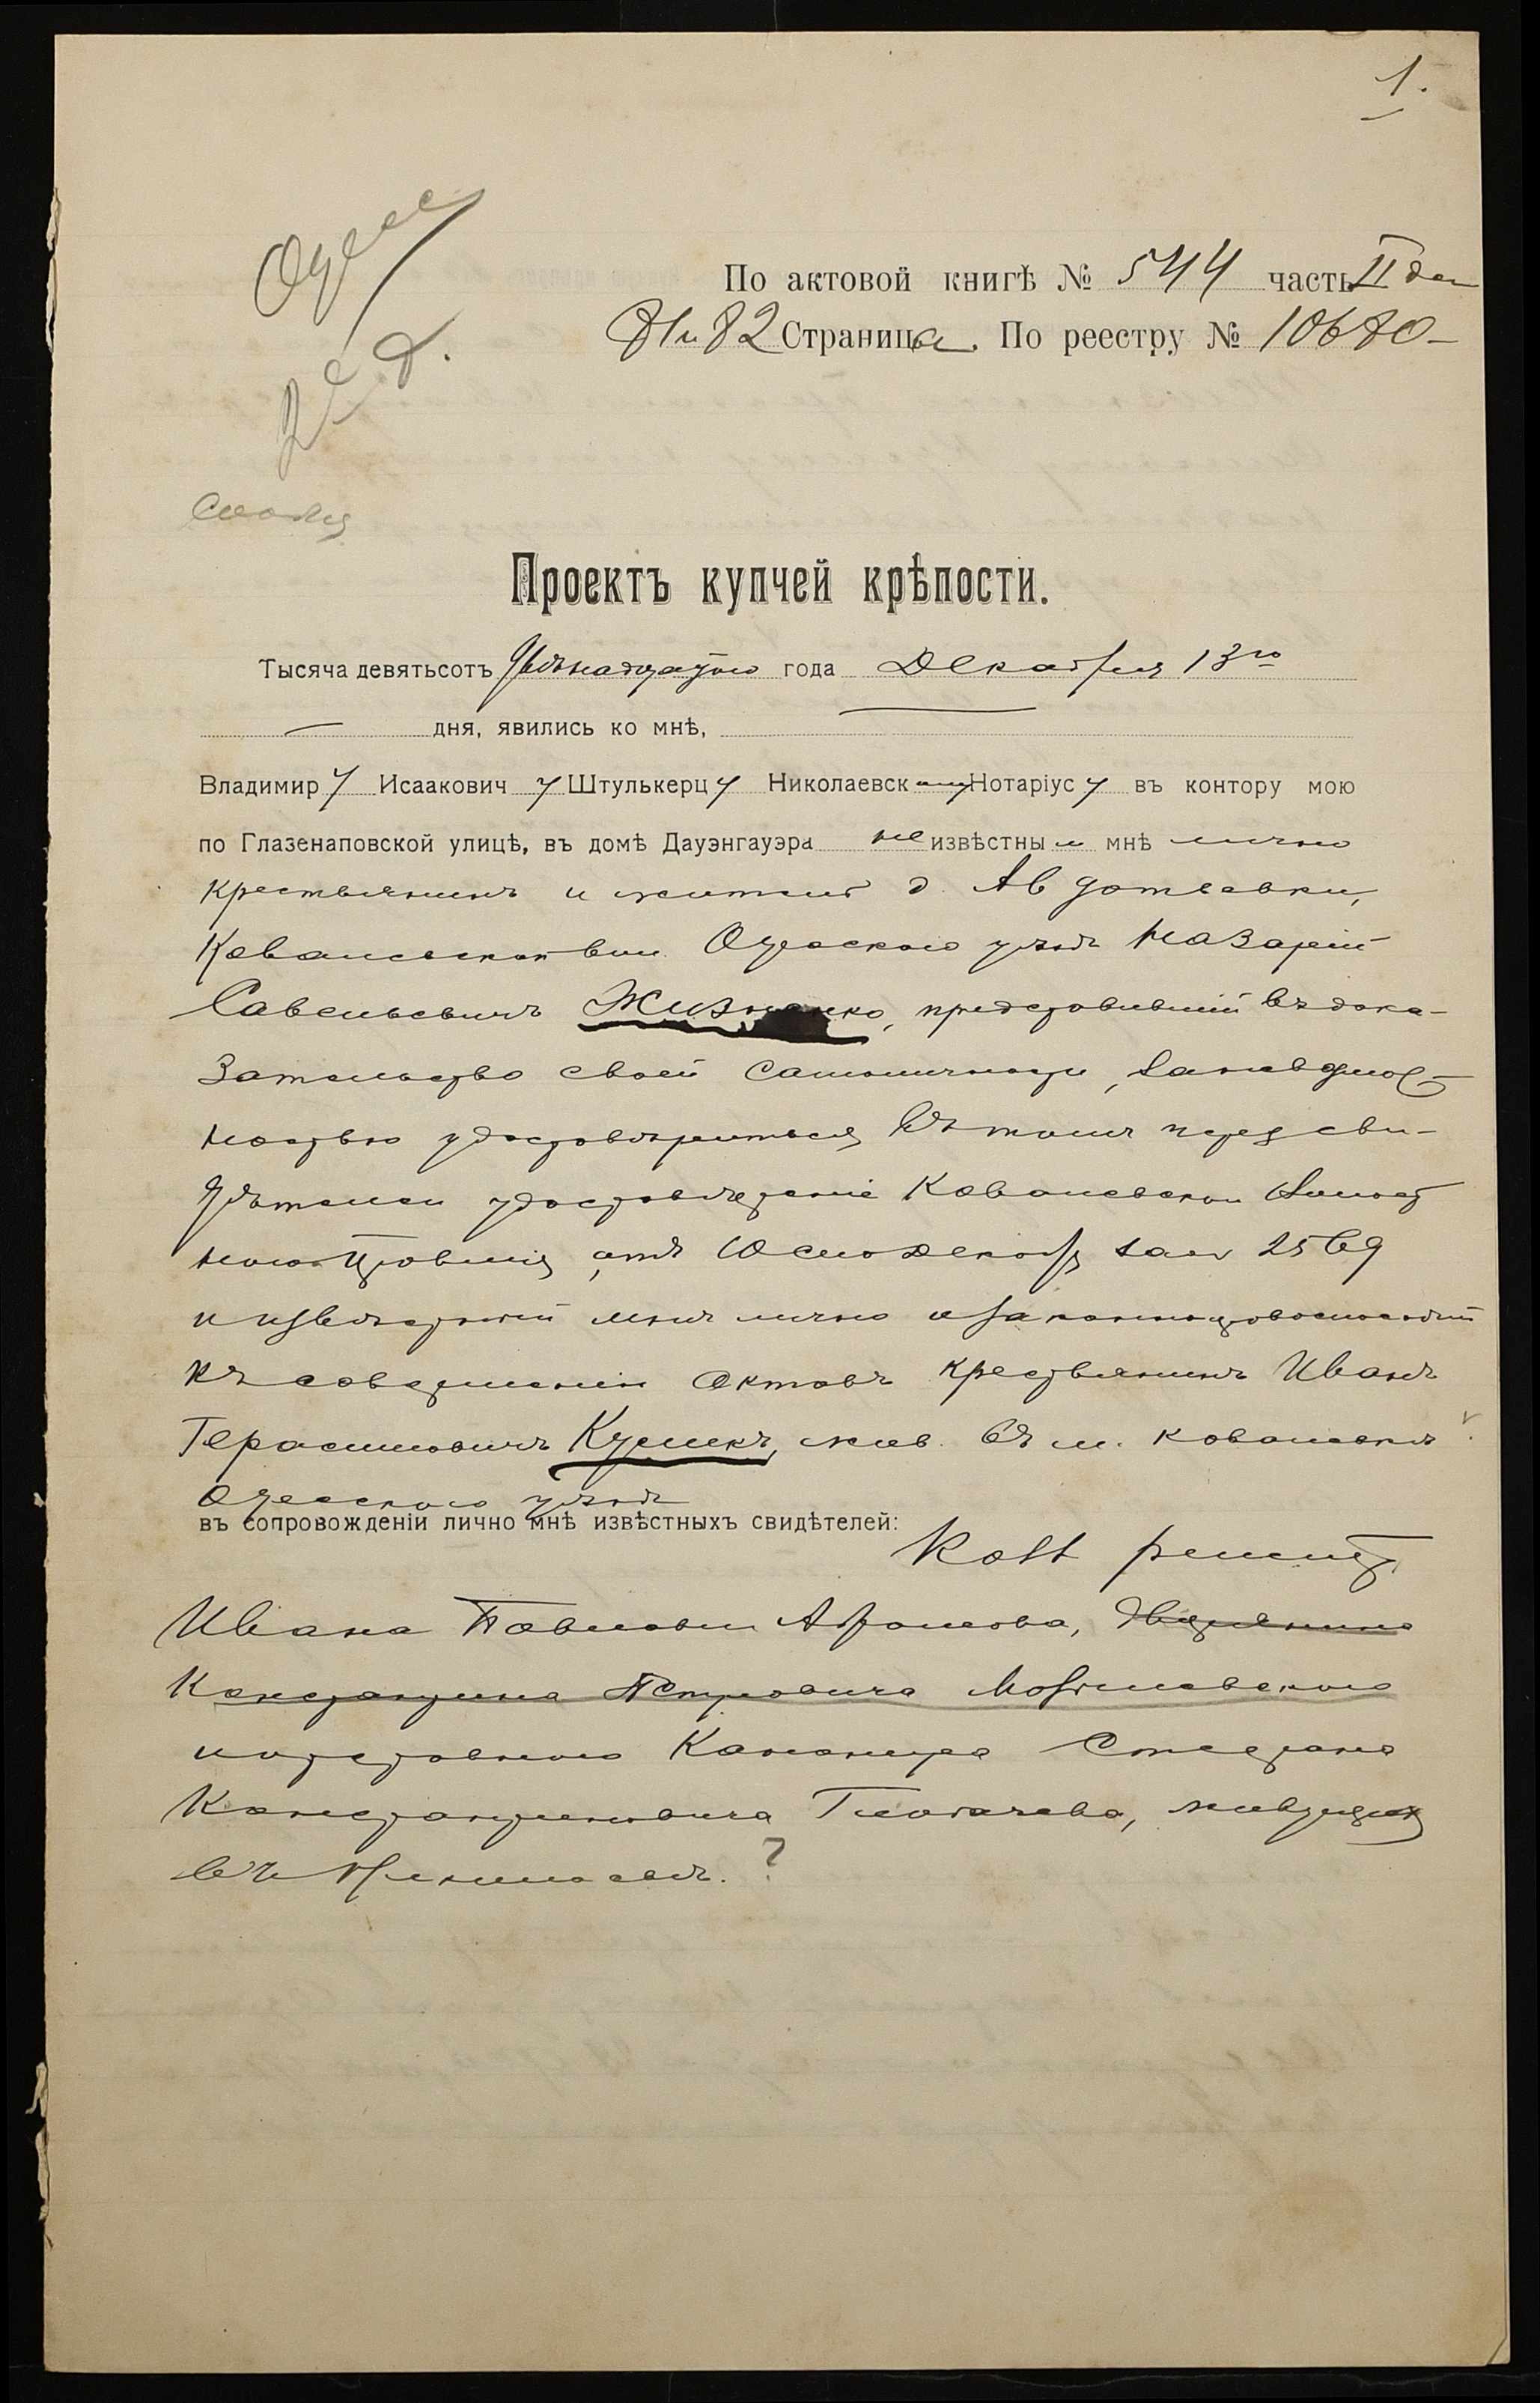 1.
Одесс
По актовой книгѣ № 544 часть II
81 и 82 Страницы. По реестру № 10680
Проектъ купчей крѣпости.
Тысяча девятьсотъ двѣнадцатого года Декабря 13го
дня, явились ко мнѣ,
Владимиру Исааковичу Штулькерцу Николаевскому Нотаріусу въ контору мою
по Глазенаповской улицѣ, въ домѣ Дауэнгауэра неизвѣстный мнѣ лично
крестьянинъ и житель д. Авдотьевки,
Ковалевской вол. Одесскаго уѣзда Назарій
Савельевичъ Жизненко, представившій въ дока-
зательство своей самоличности, за невозмож-
ностью удостовѣриться въ томъ чрезъ сви-
дѣтелей удостовѣреніе Ковалевскаго Волост
ного Правленія, отъ 10 сего Декабря за № 2569
и извѣстный мнѣ лично и законноправоспособный
къ совершенію актовъ крестьянинъ Иванъ
Герасимовичъ Куликъ, жив. въ м. Ковалевкѣ
Одесскаго уѣзда
въ сопровожденіи лично мнѣ извѣстныхъ свидѣтелей:
Ивана Павловича Абрамова, дворянина
Константина Петровича Могилевскаго
и отставного Канонира Степана
Константиновича Глобачева, живущихъ
въ Николаевѣ. ?